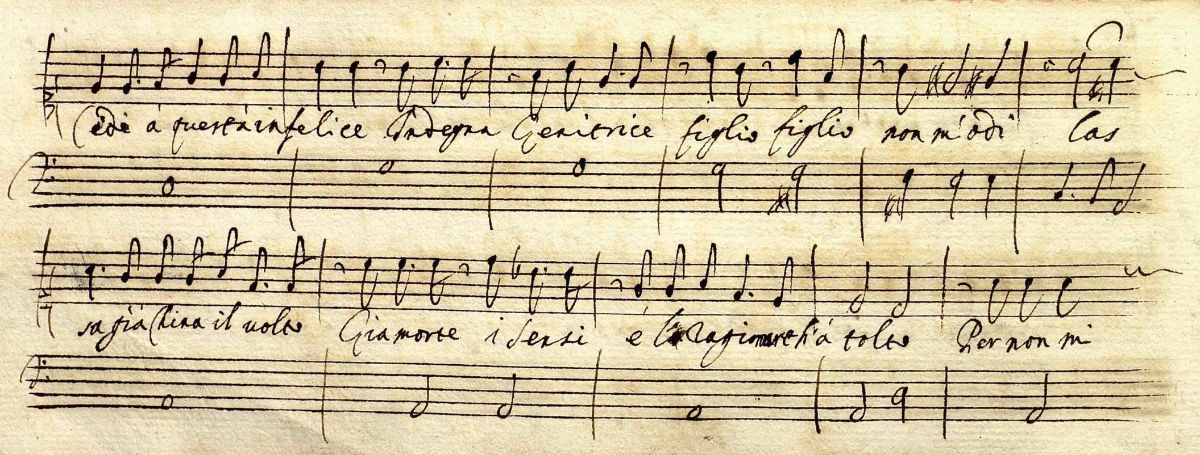 Cede à questa infelice Indegna Genitrice figlio figlio non m'odi las
sa già china il volto Gia morte i sensi è la ragion th'à tolto Per non mi